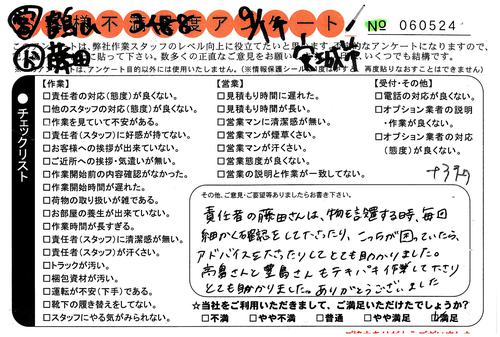 お客様不満足度アンケート
№ 060524
このアンケートは、弊社作業スタッフのレベル向上に役立てたいと思います。不定期なアンケートになりますので、
▼チェックリスト
【作業】
□責任者の対応(態度)が良くない。
□他のスタッフの対応(態度)が良くない。
□作業を見ていて不安がある。
□責任者(スタッフ)に好感が持てない。
□お客様への挨拶が出来ていない。
□ご近所への挨拶・気遣いが無い。
□作業開始前の内容確認がなかった。
□作業開始時間が遅れた。
□荷物の取り扱いが雑である。
□お部屋の養生が出来ていない。
□作業時間が長すぎる。
□責任者(スタッフ)に清潔感が無い。
□責任者(スタッフ)が汗くさい。
□トラックが汚い。
□梱包資材が汚い。
□運転が不安(下手)である。
□靴下の履き替えをしてない。
□スタッフにやる気がみられない。
【営業】
□見積もり時間に遅れた。
□見積もり時間が長い。
□営業マンに清潔感が無い。
□営業マンが煙草くさい。
□営業マンが汗くさい。
□営業態度が良くない。
□営業の説明と作業が一致してない。
【受付・その他】
□電話の対応が良くない。
□オプション業者の説明
・作業が良くない。
□オプション業者の対応
(態度)が良くない。
その他、ご意見・ご要望等ありましたらお書き下さい。
責任者の藤田さんは、物を移動する時、毎回
細かく確認をして下さったり、こっちが困っていたら、
アドバイスを下さったりしてとても助かりました。
高島さんと豊島さんもテキパキ作業して下さり
とても助かりました。ありがとうございました
☆当社をご利用いただきまして、ご満足いただけたでしょうか?
□不満 □やや不満 □普通 □やや満足 □満足